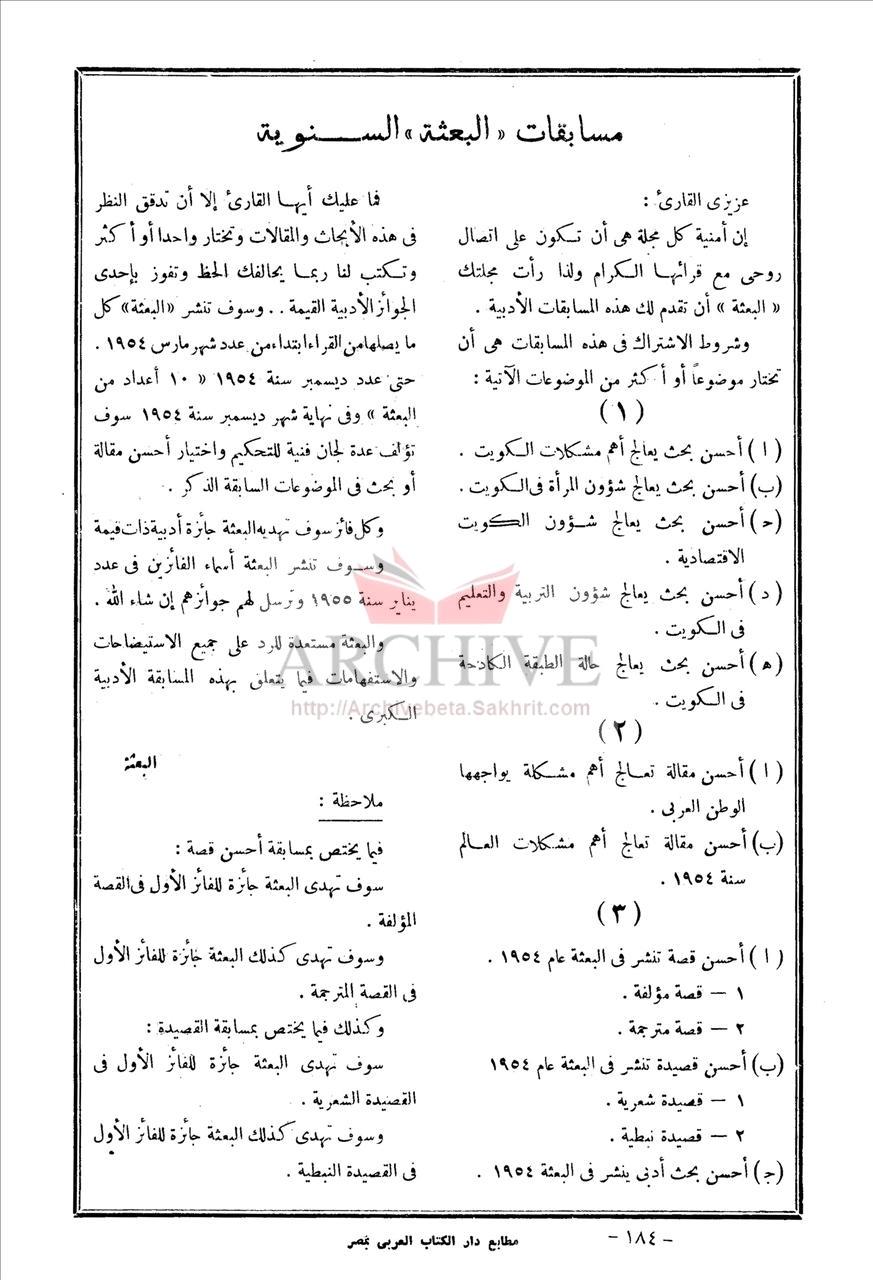 مسابقات «البعثة» السنوية
عزيزى القارئ :
إن أمنية كل مجلة هى أن تكون على اتصال
روحى مع قرائها الكرام ولذا رأت مجلتك
« البعثة » أن تقدم لك هذه المسابقات الأدبية .
وشروط الاشتراك فى هذه المسابقات هى أن
تختار موضوعاً أو أكثر من الموضوعات الآتية :
( ١ )
( ا ) أحسن بحث يعالج أهم مشكلات الكويت .
(ب) أحسن بحث يعالج شؤون المرأة فى الكويت .
(ح) أحسن بحث يعالج شؤون الكويت
الاقتصادية .
( د ) أحسن بحث يعالج شؤون التربية والتعليم
فى الكويت .
( ه ) أحسن بحث يعالج حالة الطبقة الكادحة
فى الكويت .
( ٢ )
( ا ) أحسن مقالة تعالج أهم مشكلة يواجهها
الوطن العربى .
(ب) أحسن مقالة تعالج أهم مشكلات العالم
سنة ١٩٥٤ .
( ٣ )
( ا ) أحسن قصة تنشر فى البعثة عام ١٩٥٤ .
١ — قصة مؤلفة .
٢ — قصة مترجمة .
(ب) أحسن قصيدة تنشر فى البعثة عام ١٩٥٤
١ — قصيدة شعرية .
٢ — قصيدة نبطية .
(ج) أحسن بحث أدبى ينشر فى البعثة ١٩٥٤ .
فما عليك أيها القارئ إلا أن تدقق النظر
فى هذه الأبحاث والمقالات وتختار واحدا أو أكثر
وتكتب لنا ربما يحالفك الحظ وتفوز بإحدى
الجوائز الأدبية القيمة . . وسوف تنشر «البعثة» كل
ما يصلها من القراء ابتداء من عدد شهر مارس ١٩٥٤ .
حتى عدد ديسمبر سنة ١٩٥٤ « ١٠ أعداد من
البعثة » وفى نهاية شهر ديسمبر سنة ١٩٥٤ سوف
تؤلف عدة لجان فنية للتحكيم واختيار أحسن مقالة
أو بحث فى الموضوعات السابقة الذكر .
وكل فائز سوف تهديه البعثة جائزة أدبية ذات قيمة
وسوف تنشر البعثة أسماء الفائزين فى عدد
يناير سنة ١٩٥٥ وترسل لهم جوائزهم إن شاء الله .
والبعثة مستعدة للرد على جميع الاستيضاحات
والاستفهامات فيما يتعلق بهذه المسابقة الأدبية
الكبرى .
البعثة
ملاحظة :
فيما يختص بمسابقة أحسن قصة :
سوف تهدى البعثة جائزة للفائز الأول فى القصة
المؤلفة .
وسوف تهدى كذلك البعثة جائزة للفائز الأول
فى القصة المترجمة .
وكذلك فيما يختص بمسابقة القصيدة :
سوف تهدى البعثة جائزة للفائز الأول فى
القصيدة الشعرية .
وسوف تهدى كذلك البعثة جائزة للفائز الأول
فى القصيدة النبطية .
ARCHIVE
http://Archivebeta.Sakhrit.com
— ١٨٤ —
مطابع دار الكتاب العربى بمصر